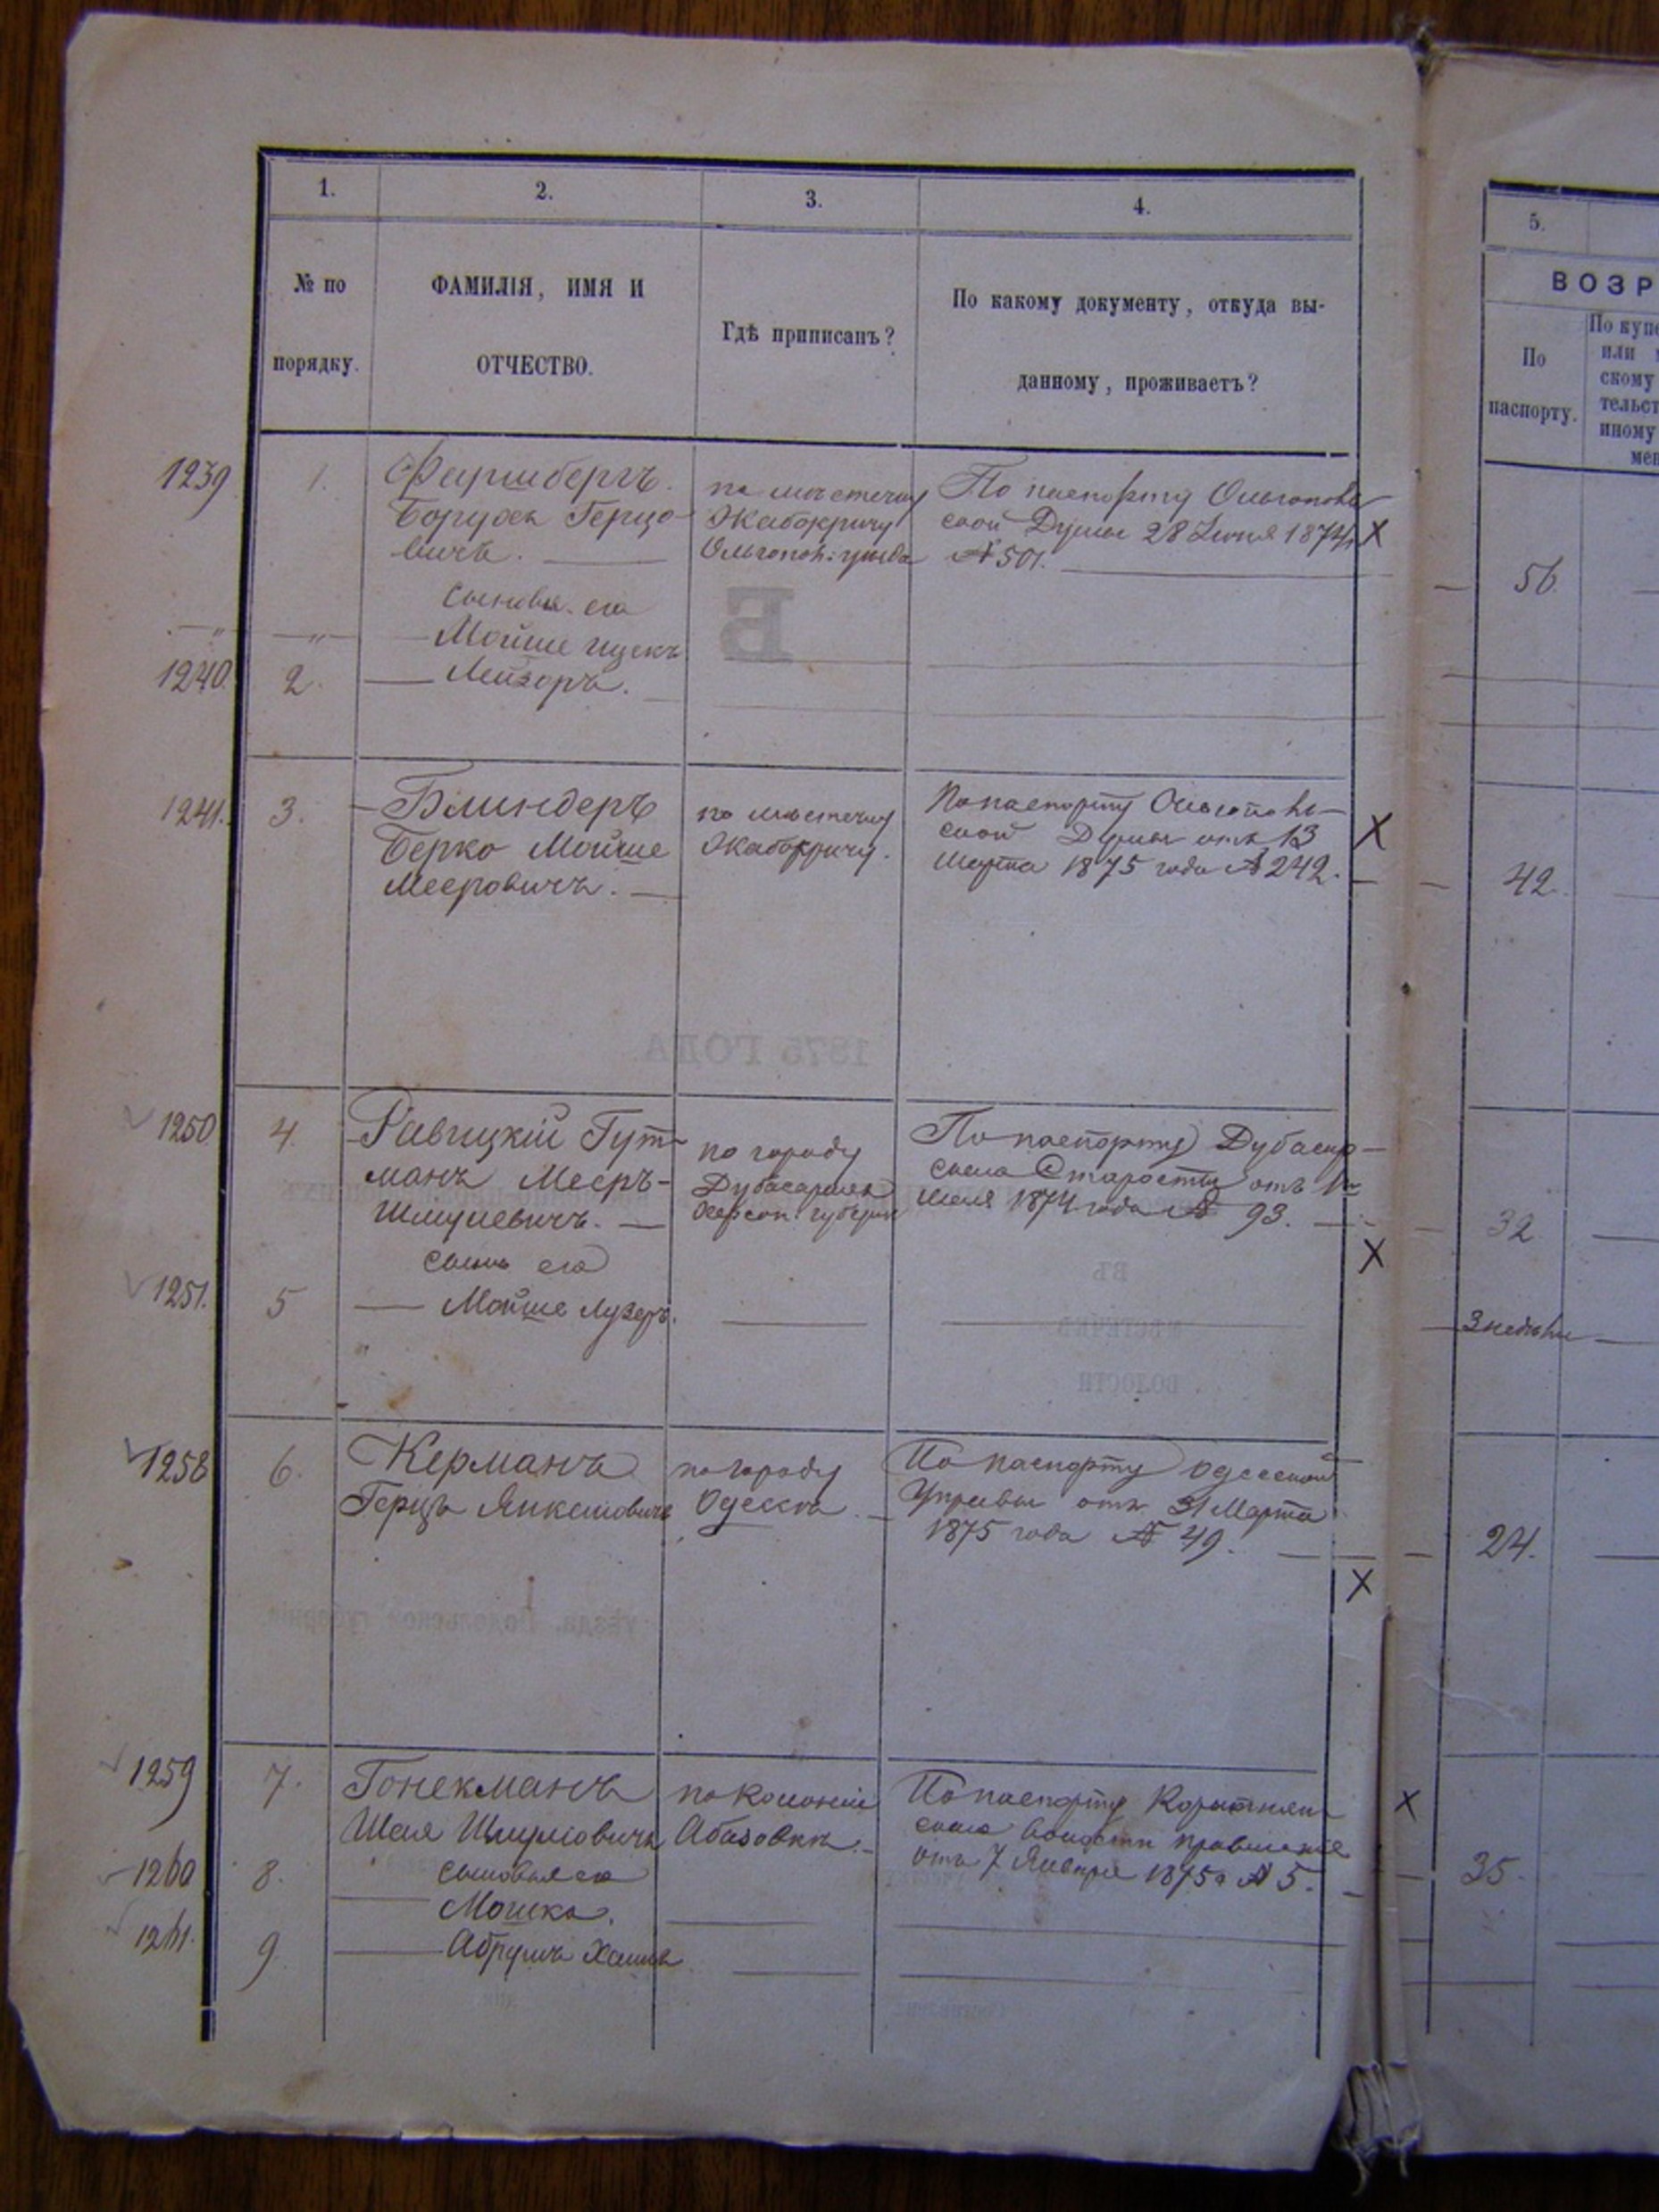 1. 2. 3. 4. 5.
№ по порядку.
ФАМИЛІЯ, ИМЯ И
ОТЧЕСТВО.
Гдѣ приписанъ?
По какому документу, откуда вы-
данному, проживаетъ?
ВОЗР
По
паспорту.
По купе
или
скому
тельст
иному
мен
1239 1. Фиршбергъ
Борухъ Герцо-
вичъ.
по мѣстечку
Жабокричу
Ольгопол. уѣзда
По паспорту Ольгополь-
ской Думы 28 Іюня 1874 г.
№ 501.
56.
сыновья его
Мойше Ицекъ
1240. 2. Лейзоръ.
1241. 3. Блиндеръ
Берко Мойше
Мееровичъ.
по мѣстечку
Жабокричу.
По паспорту Ольгополь-
ской Думы отъ 13
Марта 1875 года № 242.
42.
1250 4. Равицкій Гут-
манъ Мееръ-
Шмулевичъ.
по городу
Дубасарамъ
Херсон. губерніи
По паспорту Дубасар-
скаго Старосты отъ 1го
1874 года № 93.
32
сынъ его
1251. 5 Мойше Лузеръ.
3 недѣли
1258 6. Керманъ
Герцъ Янкелевичъ
по городу
Одесса
По паспорту Одесской
Управы отъ 31 Марта
1875 года № 49.
24.
1259 7. Гонекманъ
Шая Шмулёвичъ
по Колоніи
Абазовкѣ.
По паспорту
скаго Волостн. Правленія
отъ 7 Января 1875 г № 5.
35.
1260 8. сыновья его
Мошко.
1261. 9. Абрумъ Хаимъ